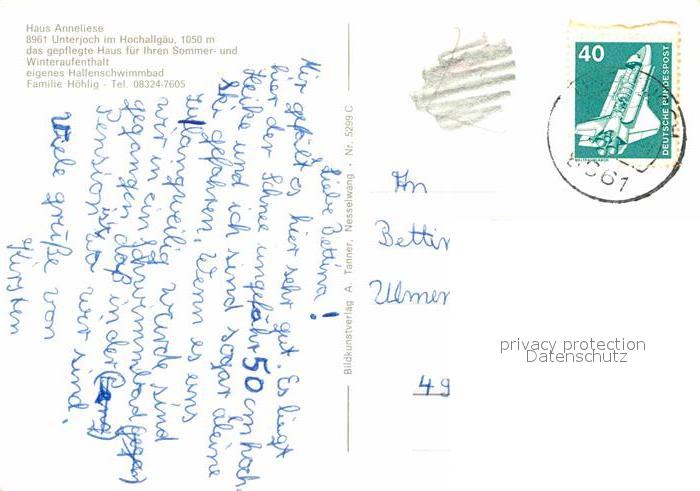 Haus Anneliese
8961 Unterjoch im Hochallgäu, 1050 m
das gepflegte Haus für Ihren Sommer- und
Winteraufenthalt
eigenes Hallenschwimmbad
Familie Höhlig - Tel. 08324-7605
Liebe Bettina!
Mir gefällt es hier sehr gut. Es liegt
hier der Schnee ungefähr 50 cm hoch.
Heike und ich sind sogar alleine
Ski gefahren. Wenn es uns
zu langweilig wurde sind
wir in ein Schwimmbad
gegangen daß in der
Pension ist wo wir sind.
Viele grüße von
Kirsten
Bildkunstverlag A. Tanner, Nesselwang · Nr. 5299 C
An
Bettin
Ulmer
49
40
DEUTSCHE BUNDESPOST
WELTRAUMLABOR
8961
privacy protection
Datenschutz